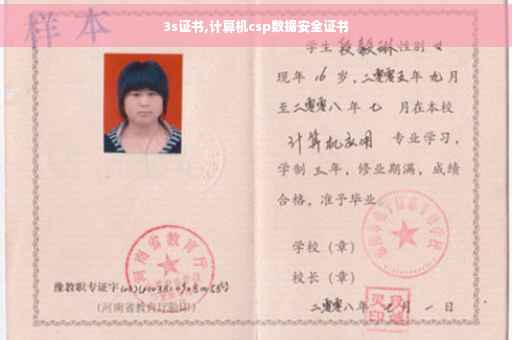 3s证书,计算机csp数据安全证书
样本
学生 段毅琳 性别 女
现年 16 岁,二零零五年 九 月
至二零零八年 七 月在本校
计算机应用 专业学习,
学制 三 年,修业期满,成绩
合格,准予毕业
学校(章)
校长(章)
二零零八年 七 月 一 日
河南省教育厅
豫教职专证字
(河南省教育厅验印)